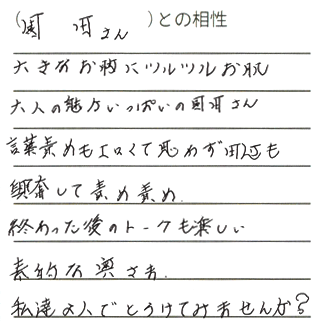 ( さん )との相性
大きなお披にツルツルお肌
大人の魅力いっぱいの さん
言葉責めもエロくて思わず も
興奮して責め責め.
終わった後のトークも楽しい
素的な奥さま.
私達 人でとうけてみませんか?